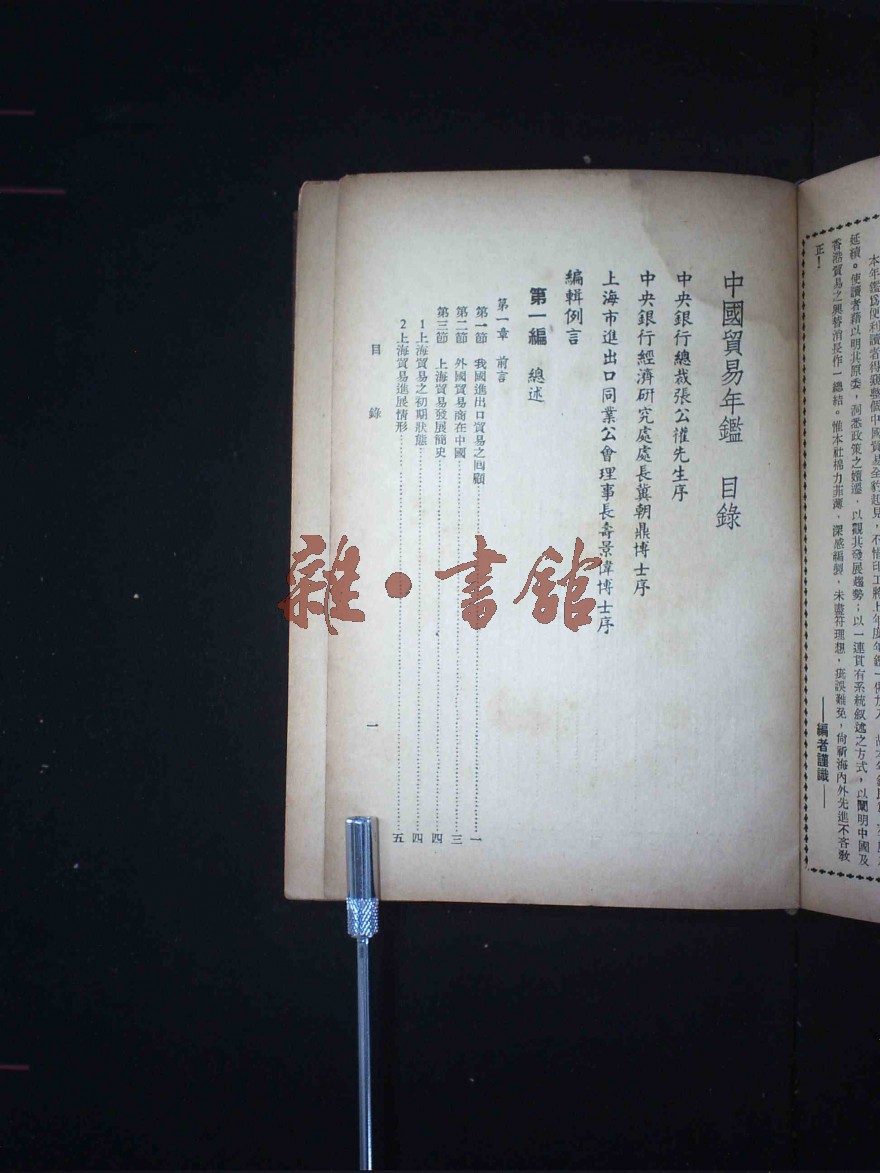 本年鑑爲便利讀者得窺整個中國貿易全豹起見,不惜印工將上年度年鑑一併加入
延續。使讀者藉以明其原委,洞悉政策之嬗遞,以觀其發展趨勢;以一連貫有系統敘述之方式,以闡明中國及
香港貿易之興替消長作一總結。惟本社棉力菲薄,深感編製,未盡符理想,疵誤難免,尚祈海內外先進不吝敎
正!
——編者謹識——
中國貿易年鑑 目錄
中央銀行總裁張公權先生序
中央銀行經濟研究處處長冀朝鼎博士序
上海市進出口同業公會理事長壽景偉博士序
編輯例言
第一編 總述
第一章 前言
第一節 我國進出口貿易之回顧……一
第二節 外國貿易商在中國……三
第三節 上海貿易發展簡史……四
1上海貿易之初期狀態……四
2上海貿易進展情形……五
目錄 一
雜·書館